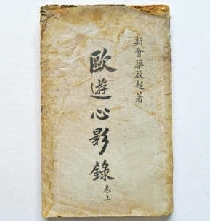 新會梁啟超著
歐遊心影錄 卷上